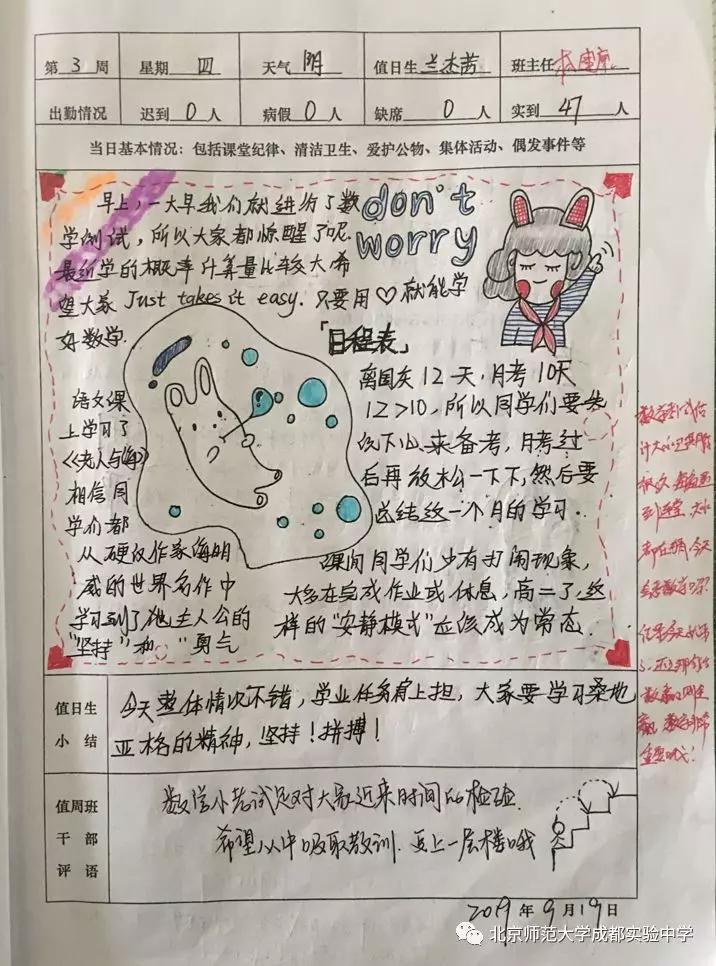 第 3 周 星期 四 天气 阴 值日生 兰杰茜 班主任
出勤情况 迟到 0 人 病假 0 人 缺席 0 人 实到 47 人
当日基本情况：包括课堂纪律、清洁卫生、爱护公物、集体活动、偶发事件等
早上，一大早我们就进行了数
学测试，所以大家都惊醒了呢
最近学的概率计算量比较大，希
望大家 Just takes it easy. 只要用♡就能学
好数学.
don't
worry
「日程表」
离国庆12天，月考10天
12>10，所以同学们要先
沉下心来备考，月考过
后再放松一下下，然后要
总结这一个月的学习..
语文课
上学习了
《老人与海》
相信同
学们都
从硬汉作家海明
威的世界名作中
学习到了他主人公的
"坚持"和 "勇气
课间同学们少有打闹现象，
大多在完成作业或休息，高二了，这
样的"安静模式"应该成为常态.
值日生
小结
今天整体情况不错，学业任务肩上担，大家要学习桑地
亚格的精神，坚持！拼搏！
值周班
干部
评语
数学小考试是对大家近来时间的检验.
希望从中吸取教训.更上一层楼哦
2019 年 9 月 19 日
北京师范大学成都实验中学